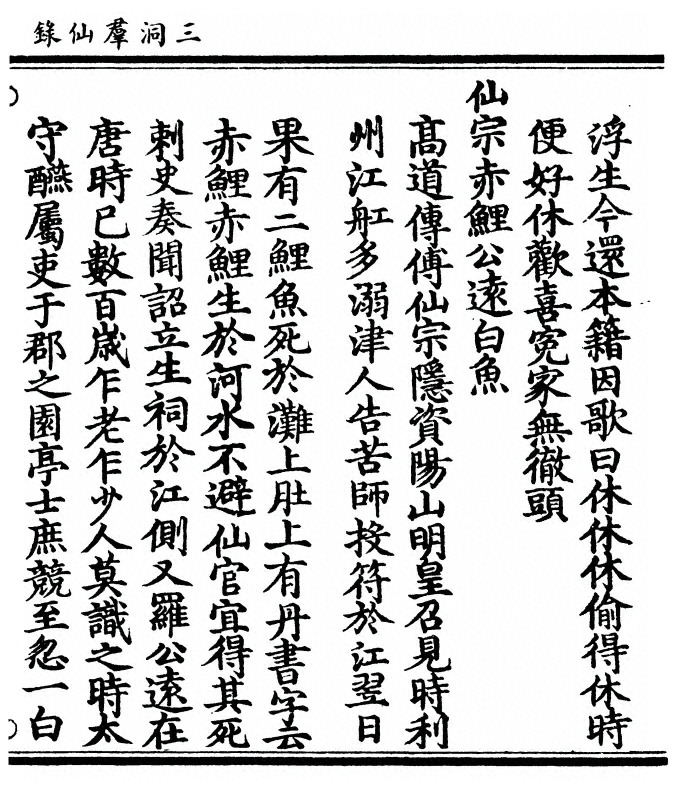 三洞羣仙錄
浮生今還本籍因歌曰休休休偷得休時
便好休歡喜冤家無徹頭
仙宗赤鯉公遠白魚
高道傳傅仙宗隱資陽山明皇召見時利
州江舡多溺津人告苦師投符於江翌日
果有二鯉魚死於灘上肚上有丹書字云
赤鯉赤鯉生於河水不避仙官宜得其死
刺史奏聞詔立生祠於江側又羅公遠在
唐時已數百歲乍老乍少人莫識之時太
守醼屬吏于郡之園亭士庶競至忽一白